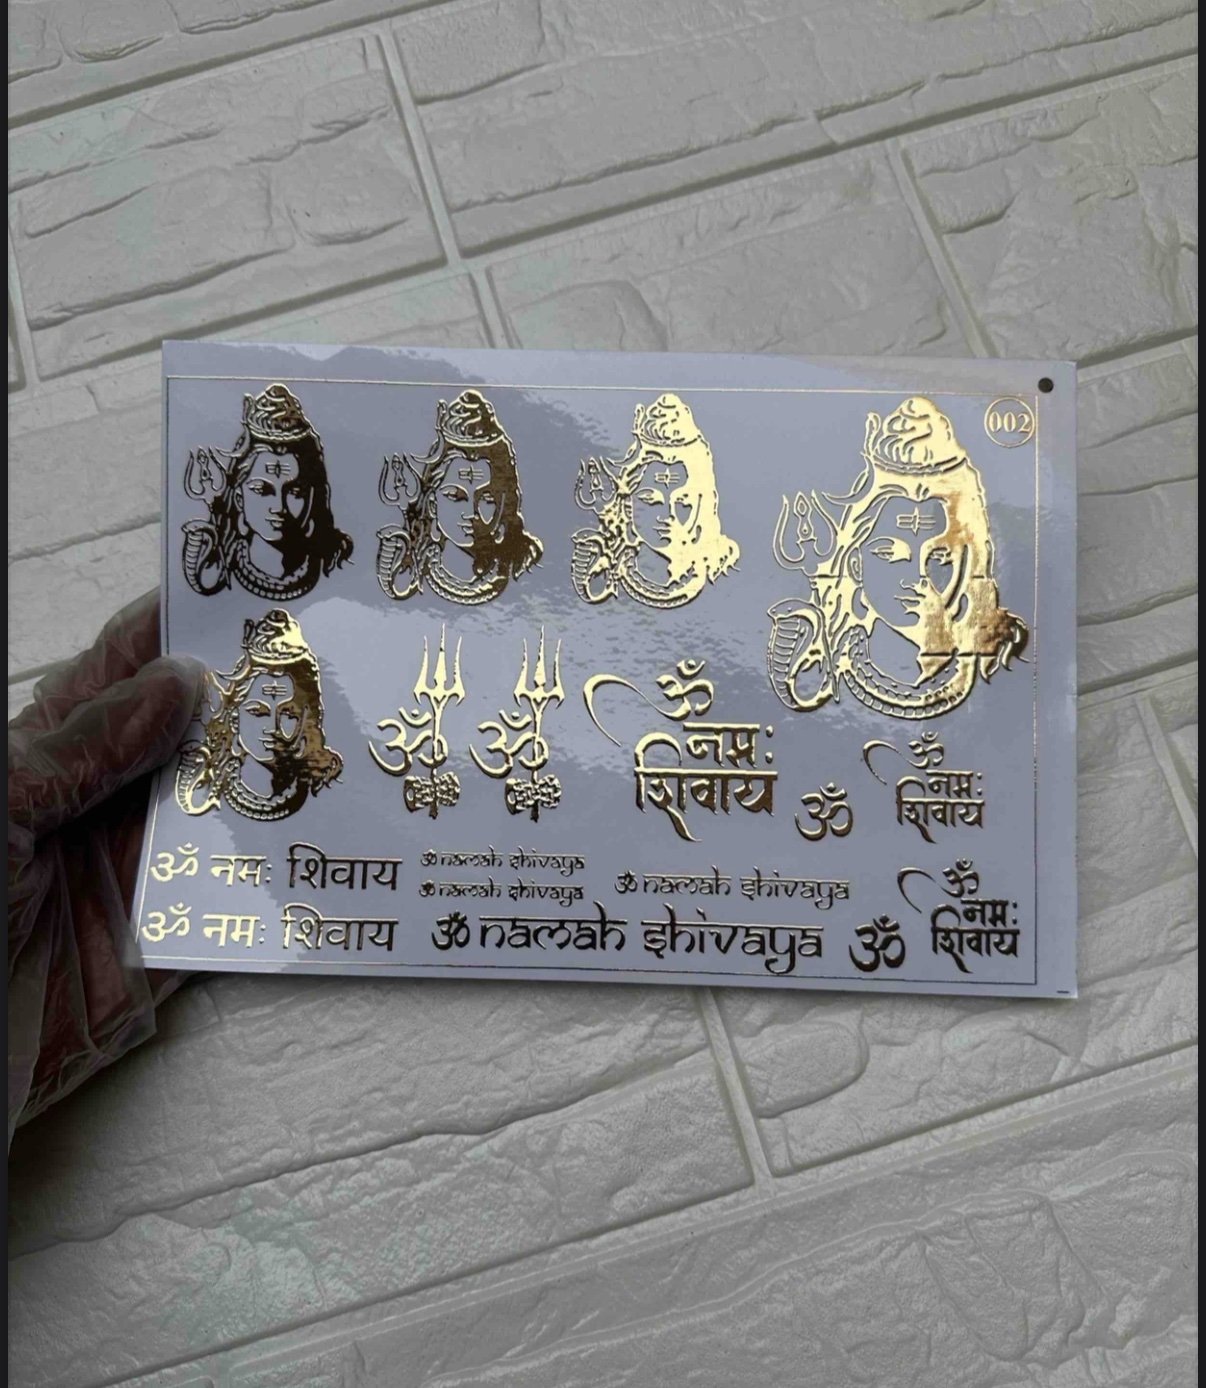 002
ॐ
ॐ
ॐ
नमः
शिवाय
ॐ
ॐ
नमः
शिवाय
ॐ नमः शिवाय
ॐ namah shivaya
ॐ namah shivaya
ॐ namah shivaya
ॐ
नमः
शिवाय
ॐ नमः शिवाय
ॐ namah shivaya
ॐ